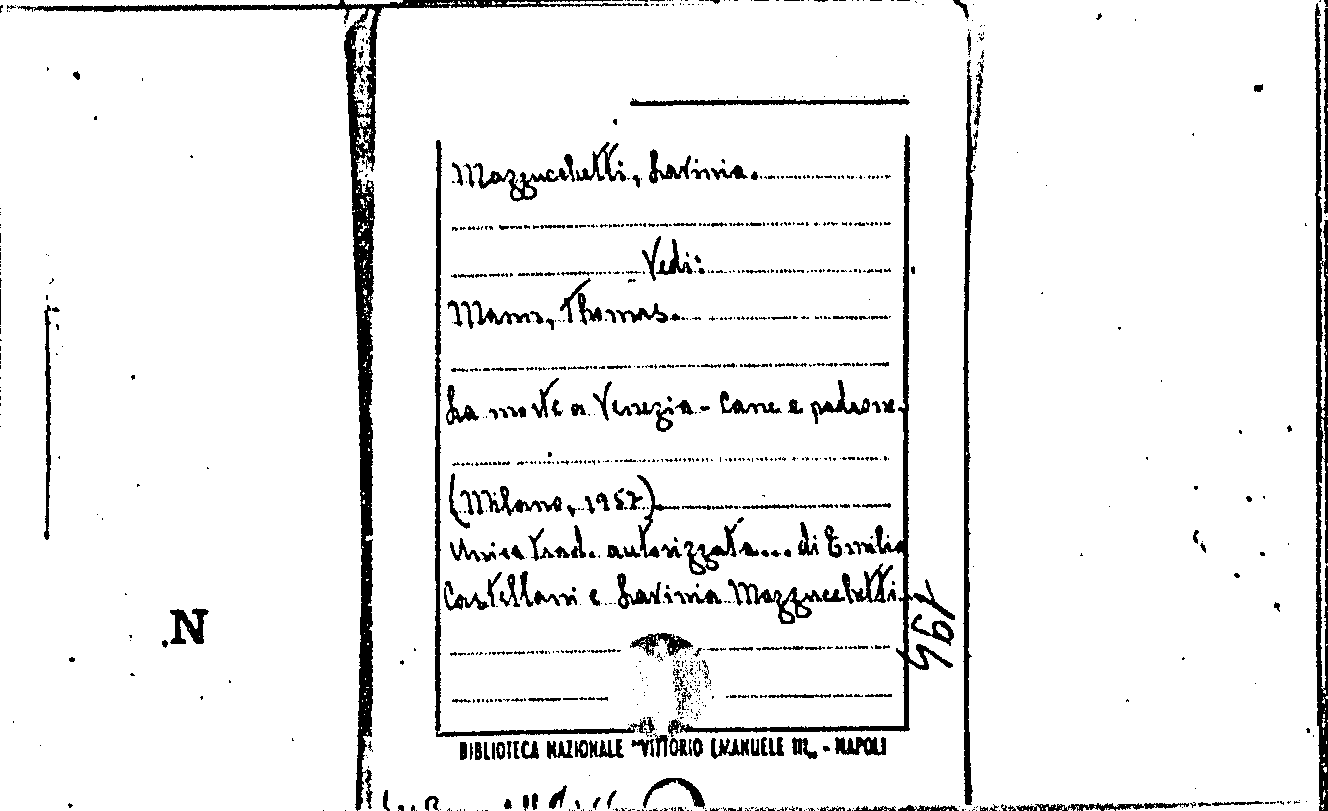 Mazzucchetti, Lavinia.
Vedi:
Mann, Thomas.
La morte a Venezia - Cane e padrone.
(Milano, 1957).
Unica trad. autorizzata... di Emilio
Castellani e Lavinia Mazzucchetti.
195
N
BIBLIOTECA NAZIONALE "VITTORIO EMANUELE III„ - NAPOLI